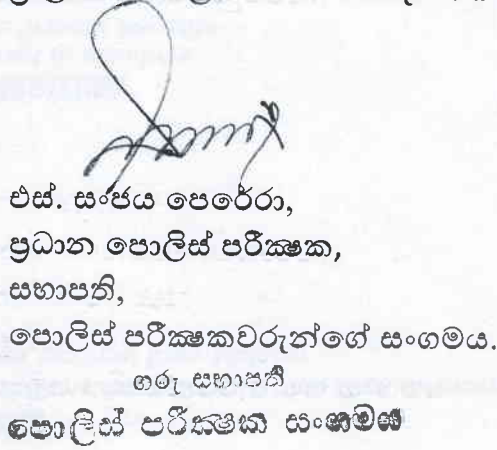 එස්. සංජය පෙරේරා,
ප්‍රධාන පොලිස් පරීක්ෂක,
සභාපති,
පොලිස් පරීක්ෂකවරුන්ගේ සංගමය.
ගරු සභාපති
පොලිස් පරීක්ෂක සංගමය